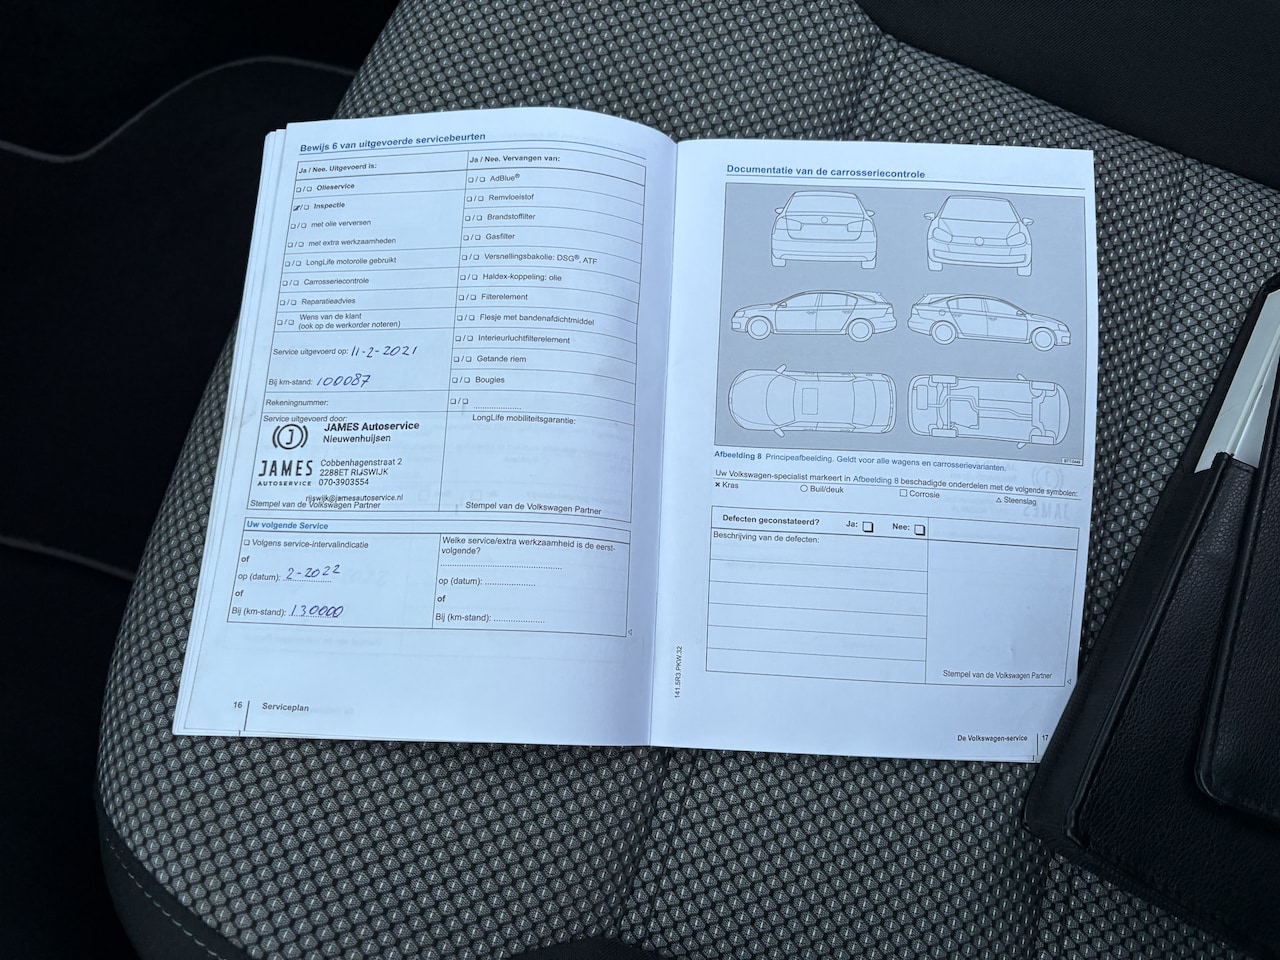 Bewijs 6 van uitgevoerde servicebeurten
Ja / Nee. Uitgevoerd is:
❏ / ❏ Olieservice
❏ / ❏ Inspectie
❏ / ❏ met olie verversen
❏ / ❏ met extra werkzaamheden
❏ / ❏ LongLife motorolie gebruikt
❏ / ❏ Carrosseriecontrole
❏ / ❏ Reparatieadvies
❏ / ❏ Wens van de klant
(ook op de werkorder noteren)
Service uitgevoerd op: 11-2-2021
Bij km-stand: 100087
Rekeningnummer:
Service uitgevoerd door:
JAMES Autoservice
Nieuwenhuijsen
JAMES
AUTOSERVICE
Cobbenhagenstraat 2
2288ET RIJSWIJK
070-3903554
rijswijk@jamesautoservice.nl
Stempel van de Volkswagen Partner
Ja / Nee. Vervangen van:
❏ / ❏ AdBlue®
❏ / ❏ Remvloeistof
❏ / ❏ Brandstoffilter
❏ / ❏ Gasfilter
❏ / ❏ Versnellingsbakolie: DSG®, ATF
❏ / ❏ Haldex-koppeling: olie
❏ / ❏ Filterelement
❏ / ❏ Flesje met bandenafdichtmiddel
❏ / ❏ Interieurluchtfilterelement
❏ / ❏ Getande riem
❏ / ❏ Bougies
❏ / ❏ ....................
LongLife mobiliteitsgarantie:
Stempel van de Volkswagen Partner
Uw volgende Service
❏ Volgens service-intervalindicatie
of
op (datum): 2-2022
of
Bij (km-stand): 130000
Welke service/extra werkzaamheid is de eerst-
volgende?
........................................
op (datum): .................
of
Bij (km-stand): .................
16 Serviceplan
Documentatie van de carrosseriecontrole
Afbeelding 8 Principeafbeelding. Geldt voor alle wagens en carrosserievarianten.
Uw Volkswagen-specialist markeert in Afbeelding 8 beschadigde onderdelen met de volgende symbolen:
× Kras ○ Buil/deuk □ Corrosie △ Steenslag
Defecten geconstateerd? Ja: ❏ Nee: ❏
Beschrijving van de defecten:
Stempel van de Volkswagen Partner
141.5R3.PKW.32
De Volkswagen-service 17